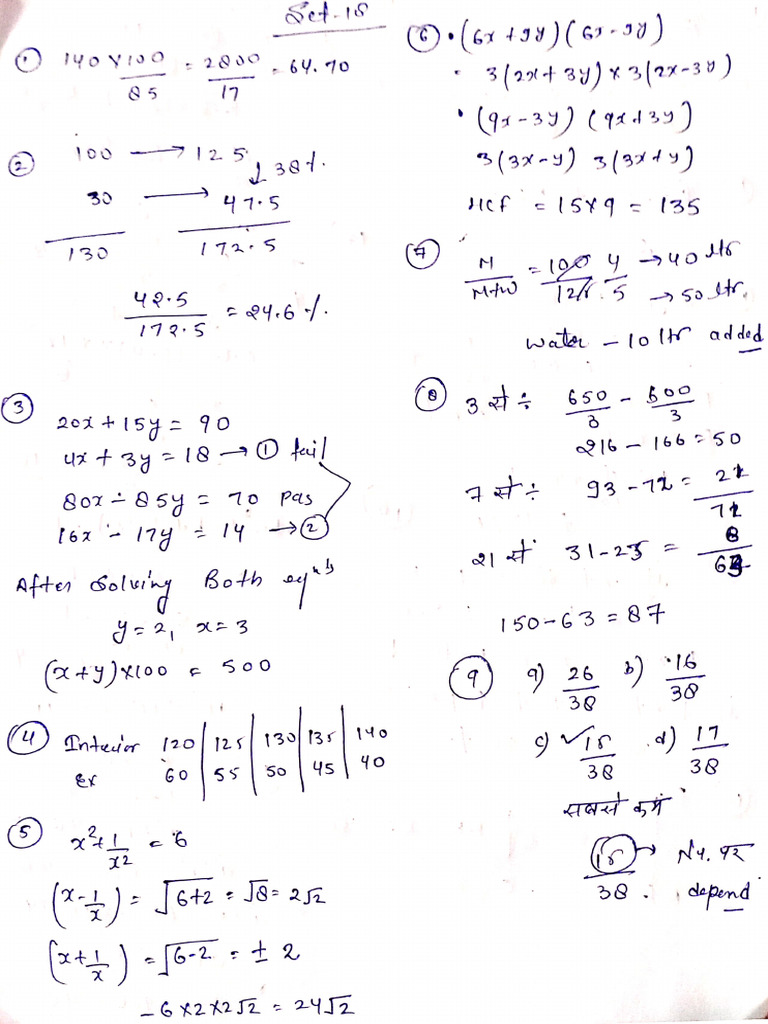 Set-18
① 140×100/85 = 2800/17 = 64.70
② 100 → 125
↓ 38%
30 → 47.5
130 172.5
42.5/172.5 = 24.6%
③ 20x + 15y = 90
4x + 3y = 18 → ① fail
80x - 85y = 70 pas
16x - 17y = 14 → ②
After Solving Both eqns
y = 2, x = 3
(x+y)×100 = 500
④ Interior 120 | 125 | 130 | 135 | 140
Ex 60 | 55 | 50 | 45 | 40
⑤ x²+1/x² = 6
(x-1/x) = √6+2 = √8 = 2√2
(x+1/x) = √6-2 = ± 2
-6×2×2√2 = 24√2
⑥ • (6x+9y)(6x-9y)
• 3(2x+3y)×3(2x-3y)
• (9x-3y)(9x+3y)
3(3x-y) 3(3x+y)
HCF = 15×9 = 135
⑦ M/M+W = 100/125 4/5 → 40 ltr
→ 50 ltr.
Water - 10 ltr added
⑧ 3 से ÷ 650/3 - 500/3
216 - 166 = 50
7 से ÷ 93 - 72 = 21
21 से 31 - 23 = 8
150 - 63 = 87
⑨ a) 26/38 b) 16/38
c) ✓ 15/38 d) 17/38
सबसे कम
15/38 → Nu. पर
depend